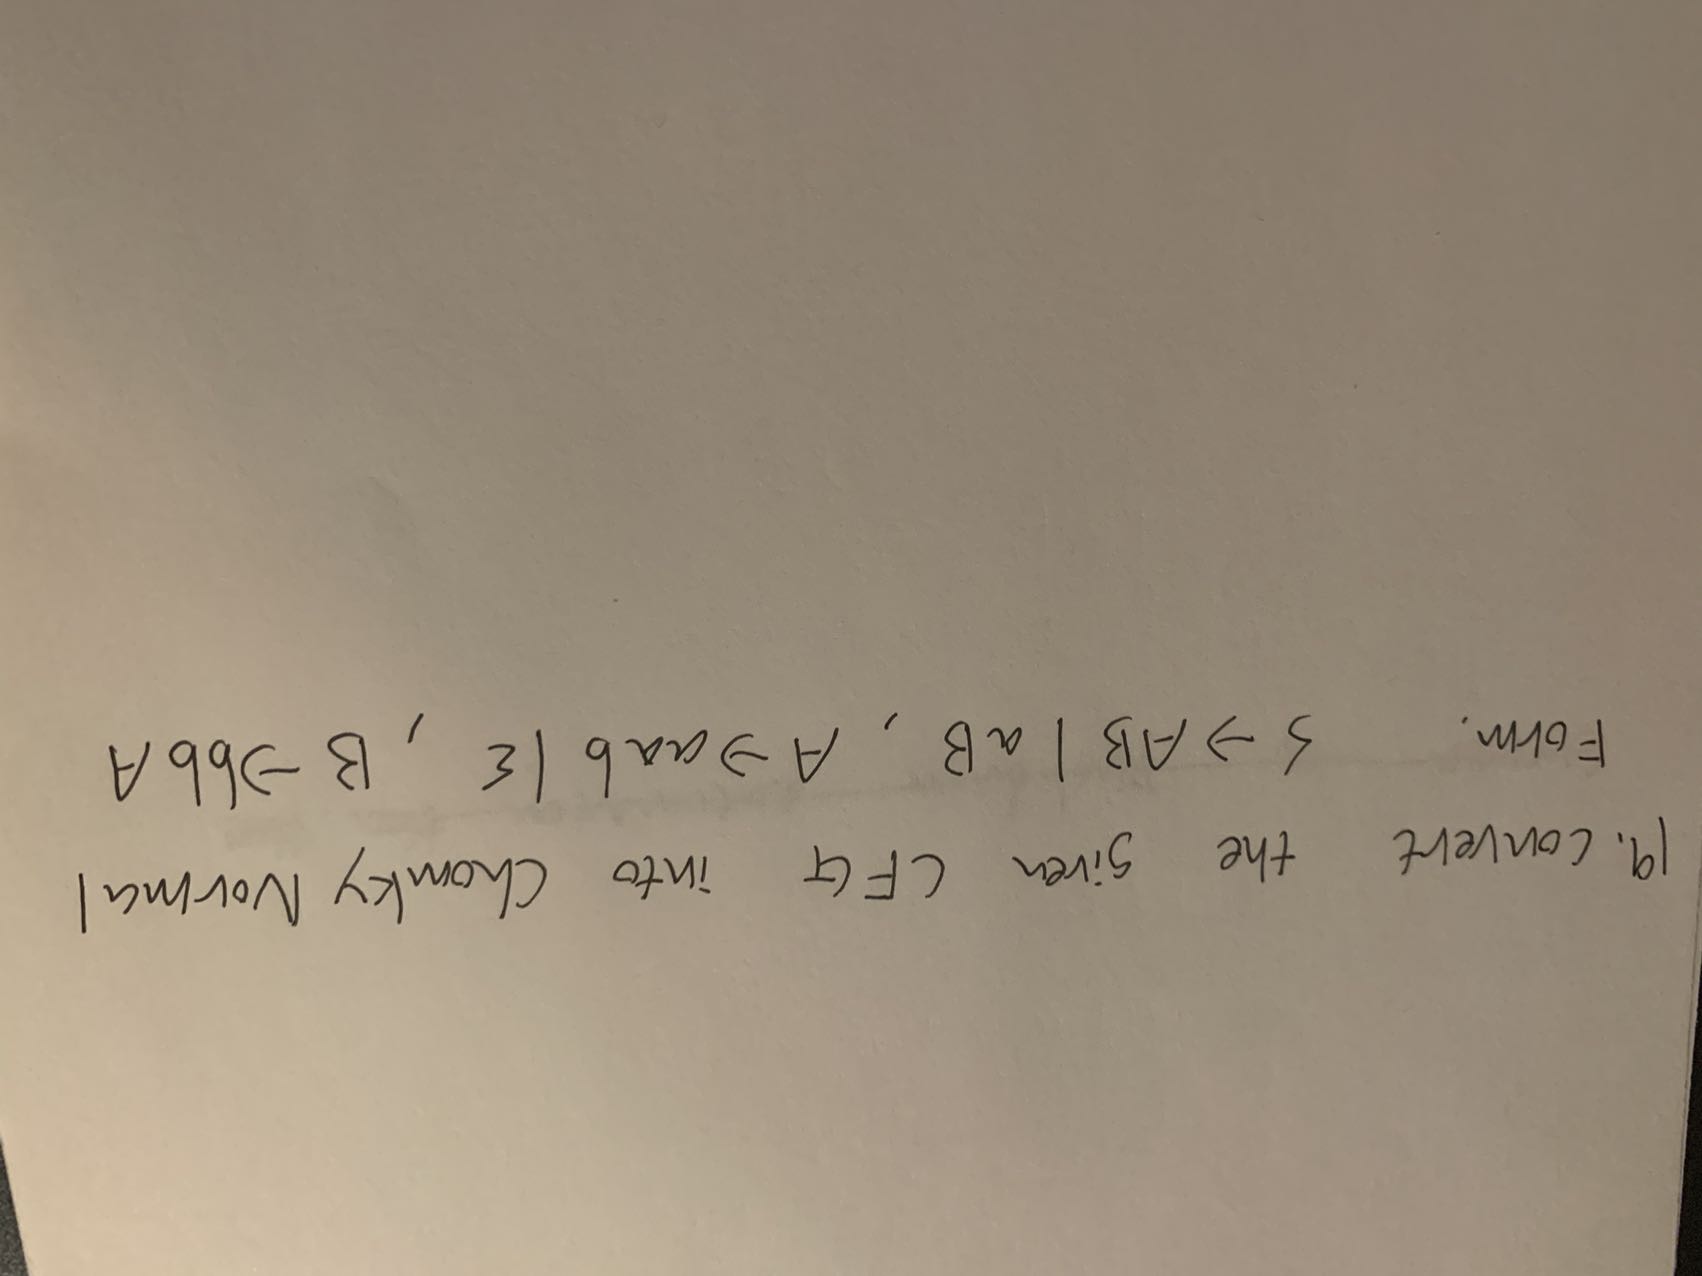 19. convert the given CFG into Chomky Normal
Form. S→AB | aB, A→aab | ε, B→bbA